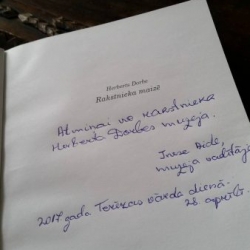 Herberts Dorbe
Rakstnieka maizē
Atmiņai no rakstnieka
Herberta Dorbes muzeja.
Inese Dide,
muzeja vadītāja
2017. gada Terēzes vārda dienā.
28. aprīlī.